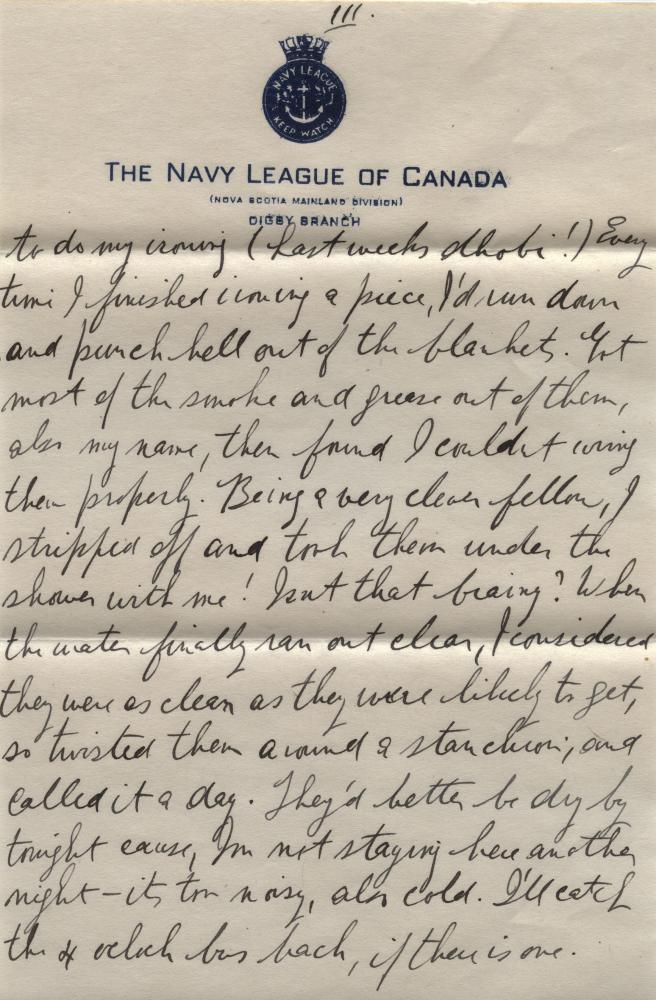 III.
NAVY LEAGUE
KEEP WATCH
THE NAVY LEAGUE OF CANADA
(NOVA SCOTIA MAINLAND DIVISION)
DIGBY BRANCH
to do my ironing (Last weeks dhobi!) Every
time I finished ironing a piece, I'd run down
and punch hell out of the blankets. Got
most of the smoke and grease out of them,
also my name, then found I couldn't wring
them properly. Being a very clever fellow, I
stripped off and took them under the
shower with me! Isnt that brainy? When
the water finally ran out clear, I considered
they were as clean as they were likely to get,
so twisted them around a stanchion, and
called it a day. They'd better be dry by
tonight cause, Im not staying here another
night - its too noisy, also cold. I'll catch
the 4 oclock bus back, if there is one.